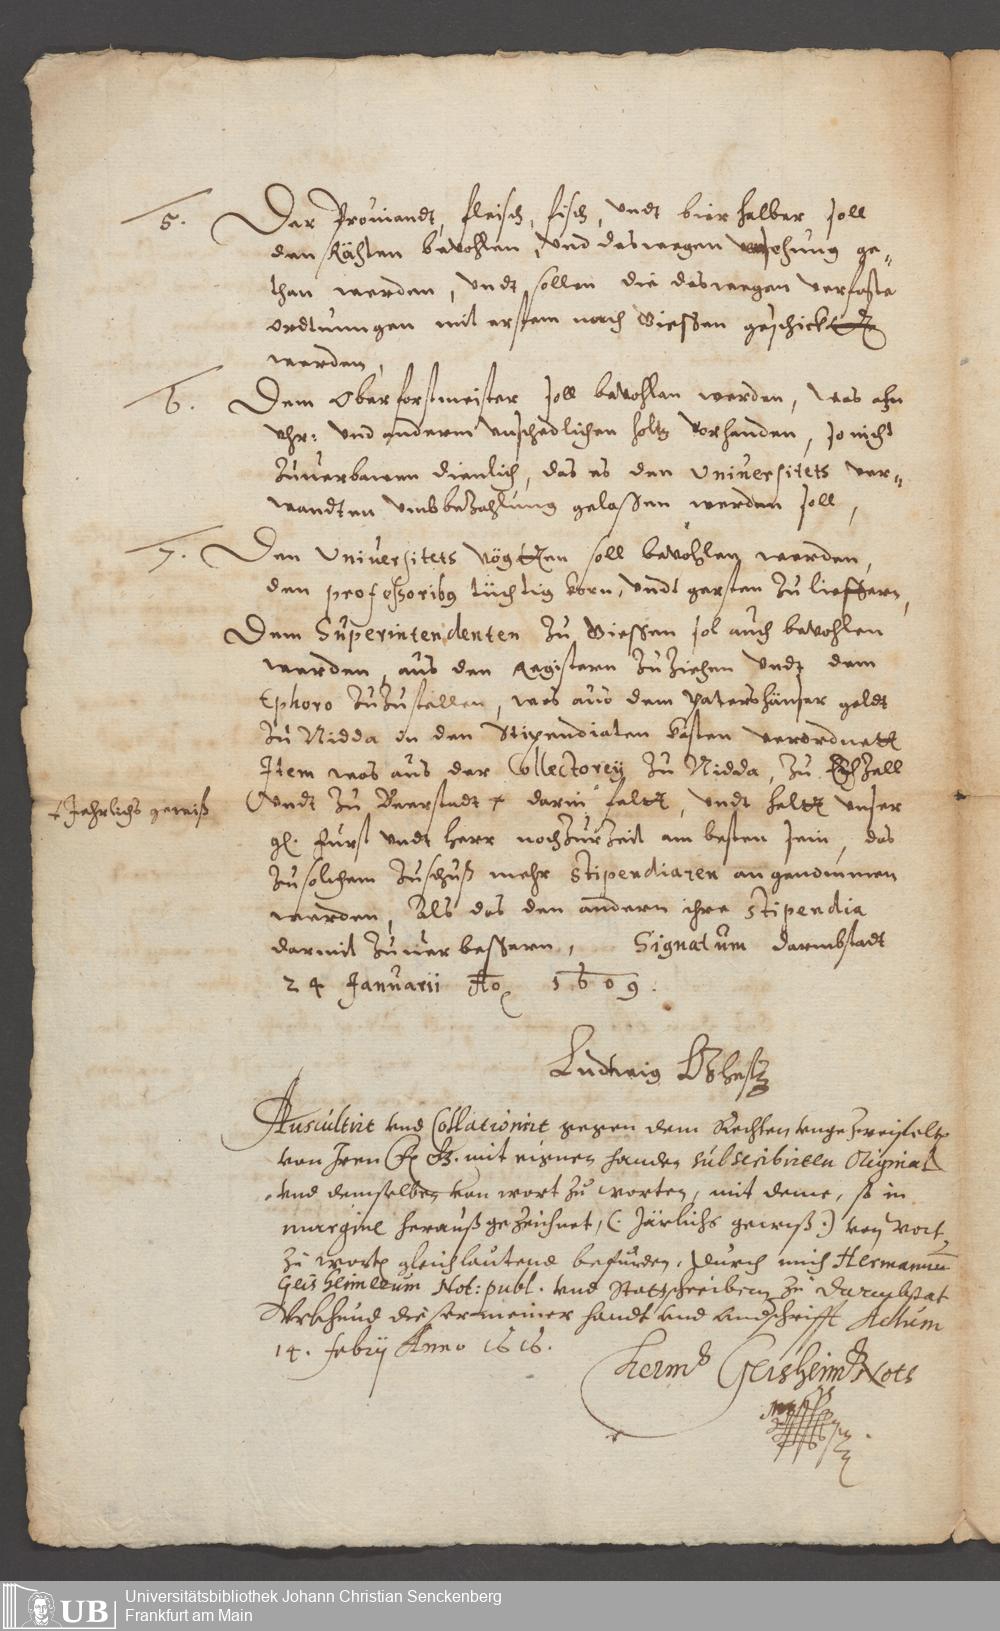 5. Der Proviandt, fleisch, fisch, undt bier halber soll
den Rähten bevohlen, und deswegen versehung ge-
than werden, undt sollen die deswegen verfaste
ordtnungen mit erstem nach Giessen geschickt
werden,
6. Dem Oberforstmeister soll bevohlen werden, was ahn
Uhr: und anderm unschedlichen holtz vorhanden, so nicht
zuuerbawen dienlich, das es den Universitets ver-
wandten umb bezahlung gelassen werden soll,
7. Den Universitets vögtten soll bevohlen werden,
den professoribus tüchtig korn, undt gersten zu lieffern,
Dem Superintendenten zu Giessen sol auch bevohlen
werden, aus den Registern zu ziehen undt dem
Ephoro zuzustellen, was aus dem Patershäuser geldt
zu Nidda in den Stipendiaten kasten verordnett
Item was aus der Collectorey zu Nidda, zu Echzell
undt zu Beerstadt + darin feltt, undt heltt unser
+ Jehrlichs gewiß
gl. Fürst undt Herr noch zur Zeit am besten sein, das
zu solchem Zuschuß mehr Stipendiaten angenommen
werden, als das den andern ihre Stipendia
darmit zuuerbessern, Signatum darmbstadt
24 Januarii Ao 1609.
Ludwig LzHess
Auscultirt und Collationirt gegen dem Rechten ungezweifelten
von Iren F. G. mit eignen handen subscribirten Original
und demselben von wort zu worten, mit deme, so in
margine heraußgezeichnet, (: Järlichs gewiß :) von wort
zu wort gleichlautend befunden, Durch mich Hermannum
Geisheimerum Not: publ. und Stattschreibern zu Darmbstat
Urkhund dieser meiner handt und undschrifft Actum
14. febrij Anno 1616.
Herm. Geisheim. Nots